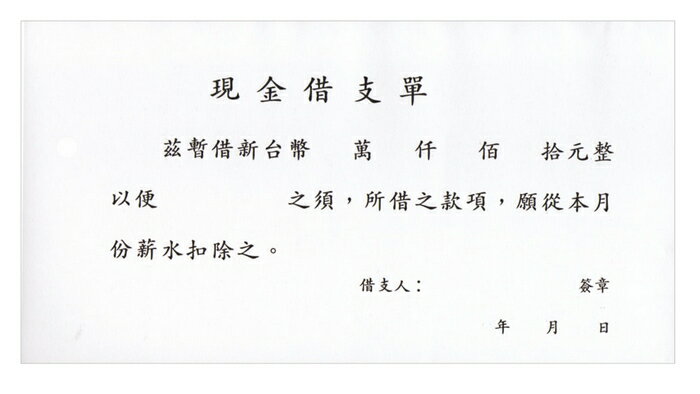 現金借支單
茲暫借新台幣 萬 仟 佰 拾元整
以便 之須，所借之款項，願從本月
份薪水扣除之。
借支人： 簽章
年 月 日